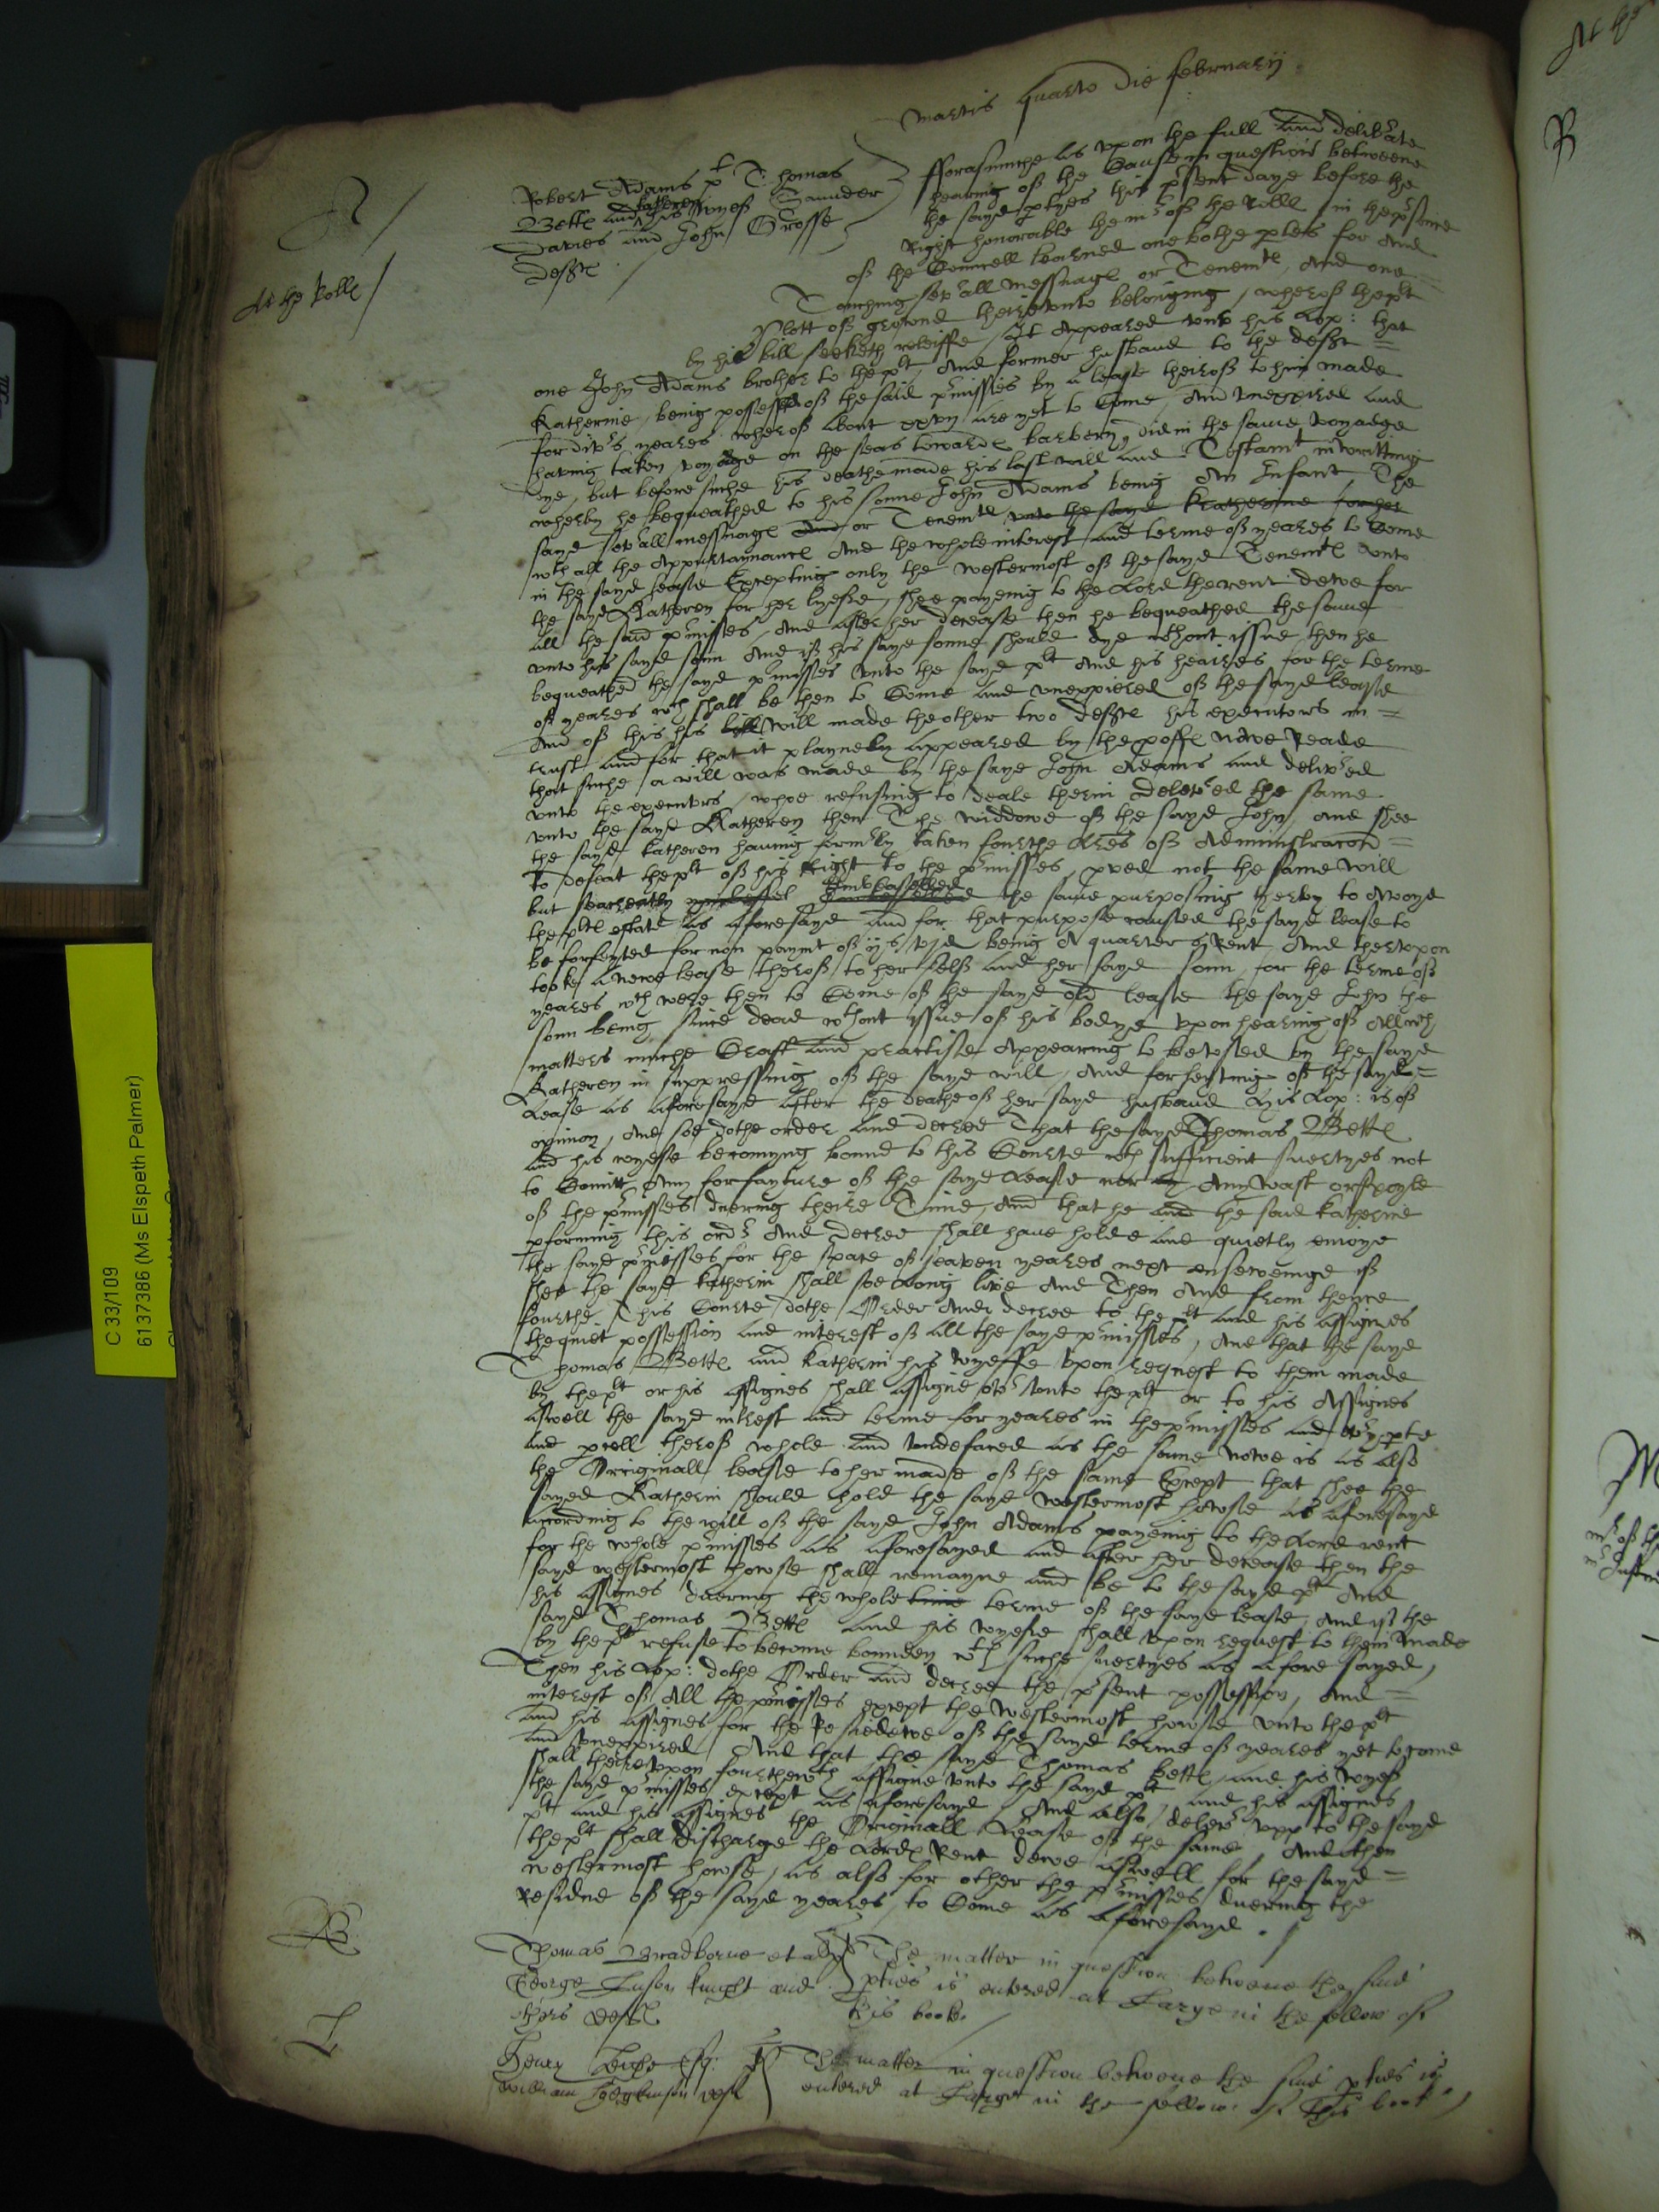 Martis quarto die februarij
At the Rolles
Robert Adams plt Thomas
Bettes and Katheren his wyeff Saunder
Davies and John Grosse
deftes
fforasmuche as upon the full and deliberate
hearing of the cause in question betweene
the sayd ptyes this psent daye before the
Right honorable the mr of the Rolles in the psence
of the Councell learned one bothe ptes for and
Touching sev'all messuages or Tenemtes, And one
Plott of ground theireunto belonging, wherof the plt
by his bill seeketh releiffe, It Appeared unto his Lop: that
one John Adams brother to the plt, And former husband to the deft =
Katherine, being possessed of the said pmisses by a lease theirof to him made
for divrs yeares wherof about xxvj are yet to Come, And unexpired and
having taken voyage on the seas towardes barbery, did in the same voyadge
dye, but before suche his deathe made his last will and Testamt in writting
wherby he bequeathed to his sonne John Adams being An Infant, The
sayd sev'all messuages and or Tenemtes unto the sayd Katherine for her
wth all the Appurtaynances And the whole interest and terme of yeares to Come
in the sayd lease Excepting only the westermost of the sayd Tenemtes unto
the sayd Katheren for her lyeffe, shee payeing to the Lord the rent dewe for
all the said pmisses, And after her decease then he bequeathed the same
unto his sayd sonn And if his sayd sonne should dye wthout issue then he
bequeathed the sayd pmisses unto the sayd plt And his heaires for the terme
of yeares wch shall be then to Come and unexpiered of the sayd lease
And of this his bill will made the other two deftes his executors in =
trust and for that it playnely appeared by the proffes nowe Reade
that suche a will was made by the sayd John Adams and delivred
unto the executors, whoe refusing to deale therin Delivred the same
unto the sayd Katheren then The widdowe of the sayd John, And shee
the sayd Katheren having formrly taken fourthe Lres of Administracon =
To defeat the plt of his Right to the pmisses, pved not the same will
but secreatly imbeaselled the same purposing therby to Avoyd
the pltes estate as aforesayd and for that purpose caused the sayd lease to
be forfeyted for non paymt of ijs vjd being A quarters Rent And therupon
tooke A newe lease therof to her self and her sayd sonn, for the terme of
yeares wch were then to Come of the sayd old lease the sayd John the
sonn being since dead wthout yssue of his bodye Upon hearing of All wch
matters muche Craft and practise Appearing to be used by the sayd
Katheren in suppressing of the sayd will, And forfeyting of the sayd =
Lease as aforesayd after the deathe of her sayd husband his Lop: is of
opinion, And soe dothe order and decree That the sayd Thomas Bettes
and his wyefe becomyng bound to this Courte wth sufficient suertyes not
to Comitt Any forfayture of the sayd Lease nor any Wast or spoyle
of the pmisses duering theire Time, And that he and the said Katherine
pforming this ordr And decree shall have hold and quietly enioye
the sayd pmisses for the space of seaven yeares next enseweinge if
shee the sayd Katherin shall soe Long live And Then And from thence
fourthe, This Courte dothe Order And decree to the plt and his assignes
the quiet possession and interest of all the sayd pmisses, And that the sayd
Thomas Bettes and Katherin his wyeffe Upon request to them made
by the plt or his assignes shall assigne ovr unto the plt or to his Assignes
aswell the sayd intrest and terme for yeares in the pmisses and evry pte
and pcell therof whole and undefaced as the same nowe is as also
the Origniall lease to her made of the same Except that shee the
sayed Katherin should hold the sayd westermost howse as aforesayd
according to the will of the sayd John Adams payeing to the Lord rent
for the whole pmisses as aforesayed and after her decease then the
sayd westermost howse shall remayne and be to the sayd plt And
his assignes duering the whole time terme of the sayd lease, And if the
sayd Thomas Bettes and his wyefe shall upon request to them made
by the plt refuse to become bounden wth suche suertyes as afore sayed,
Then his Lop: dothe Order and decree the psent possession, And =
interest of All the pmisses except the Westermost howse unto the plt
and his assignes for the Residewe of the sayd terme of yeares yet to come
and unexpired And that the sayd Thomas Bettes and his wyef
shall thereupon fourthewth assigne unto the sayd plt and his assignes
the sayd pmisses except as aforesayd, And also delivr upp to the sayd
plt and his assignes the Originall Lease of the same, And then
the plt shall discharge the Lordes Rent dewe aswell for the sayd =
westermost howse, as also for other the pmisses duering the
Residue of the sayd yeares to Come as aforesayd.
Thomas Bradborne et al plt
George knight and
others deftes
The matter in question betweene the said
pties is entered at Large in the fellow of
this booke
Henry Esq: plt
William deft
The matter in question betweene the said pties is
entered at Large in the fellow of this booke
C 33/109
6137386 (Ms Elspeth Palmer)